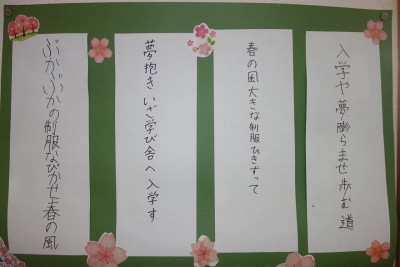 入学や夢膨らませ歩む道
春の風大きな制服ひきずって
夢抱きいざ学び舎へ入学す
ぶかぶかの制服なびかせ春の風